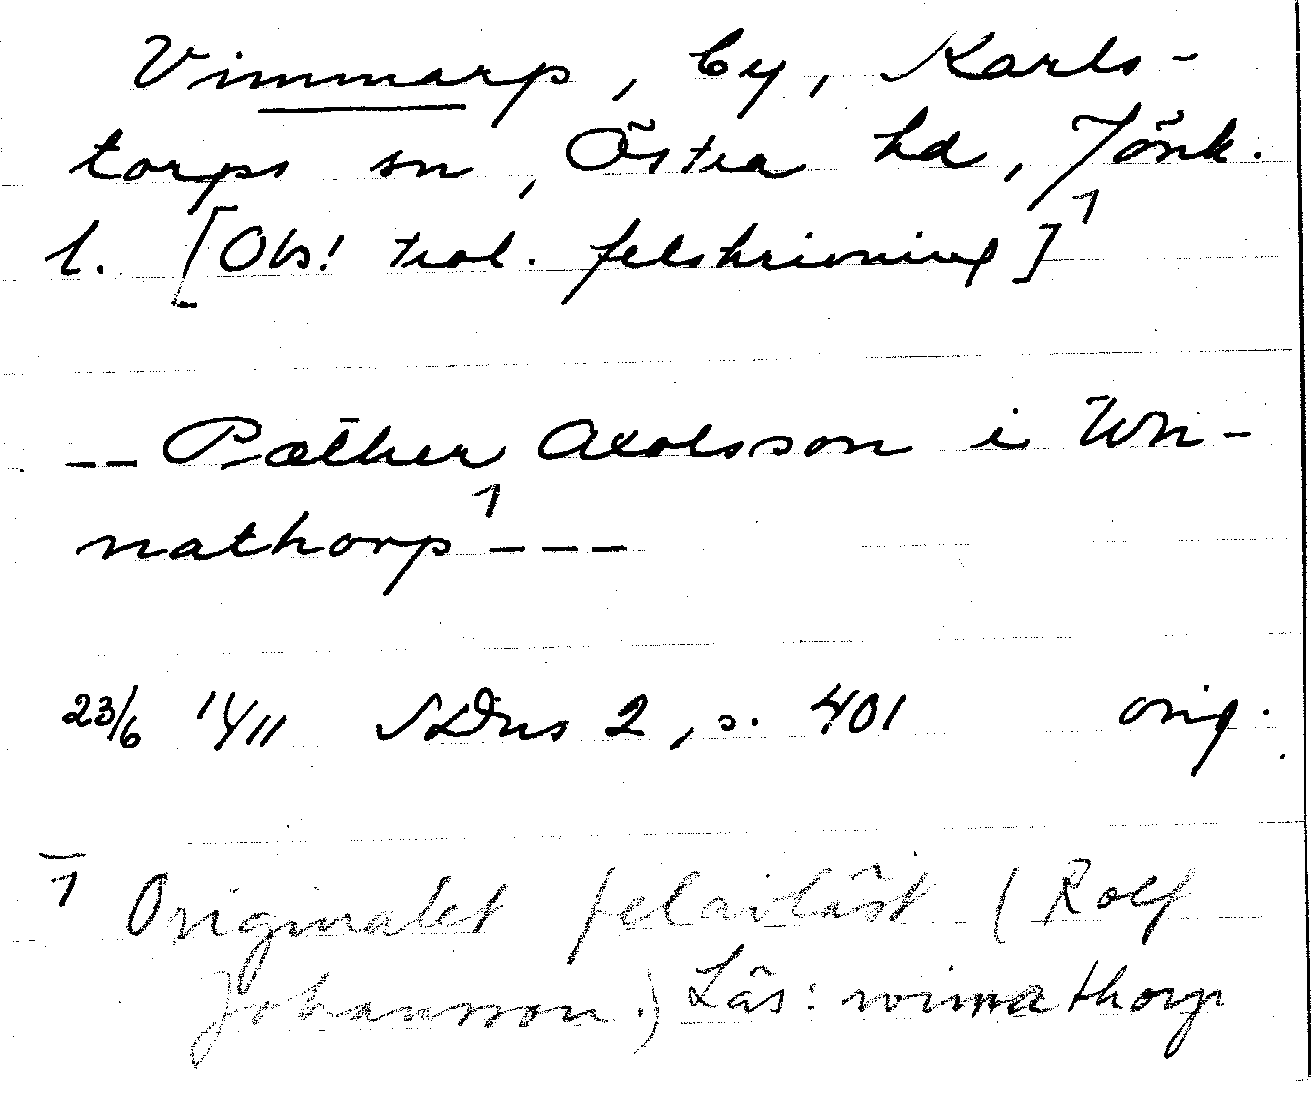 Vimmarp, by, Karls-
torps sn, Östra hd, Jönk.
l. [Obs! trol. felskrivning]¹
-- Pæther Axelsson i Wn-
nathorp¹ ---
23/6 1411 SDns 2, s. 401 orig.
1 Originalet felavläst (Rolf
Johansson.) Läs: wimathorp